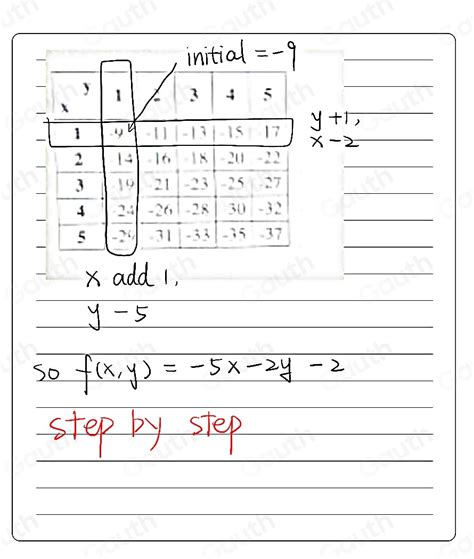 initial = -9
y
x 1 2 3 4 5
1 -9 -11 -13 -15 -17
2 14 -16 -18 -20 -22
3 -19 -21 -23 -25 -27
4 -24 -26 -28 30 -32
5 -29 -31 -33 -35 -37
y+1,
x-2
x add 1,
y - 5
so f(x,y) = -5x-2y -2
step by step
Gauth